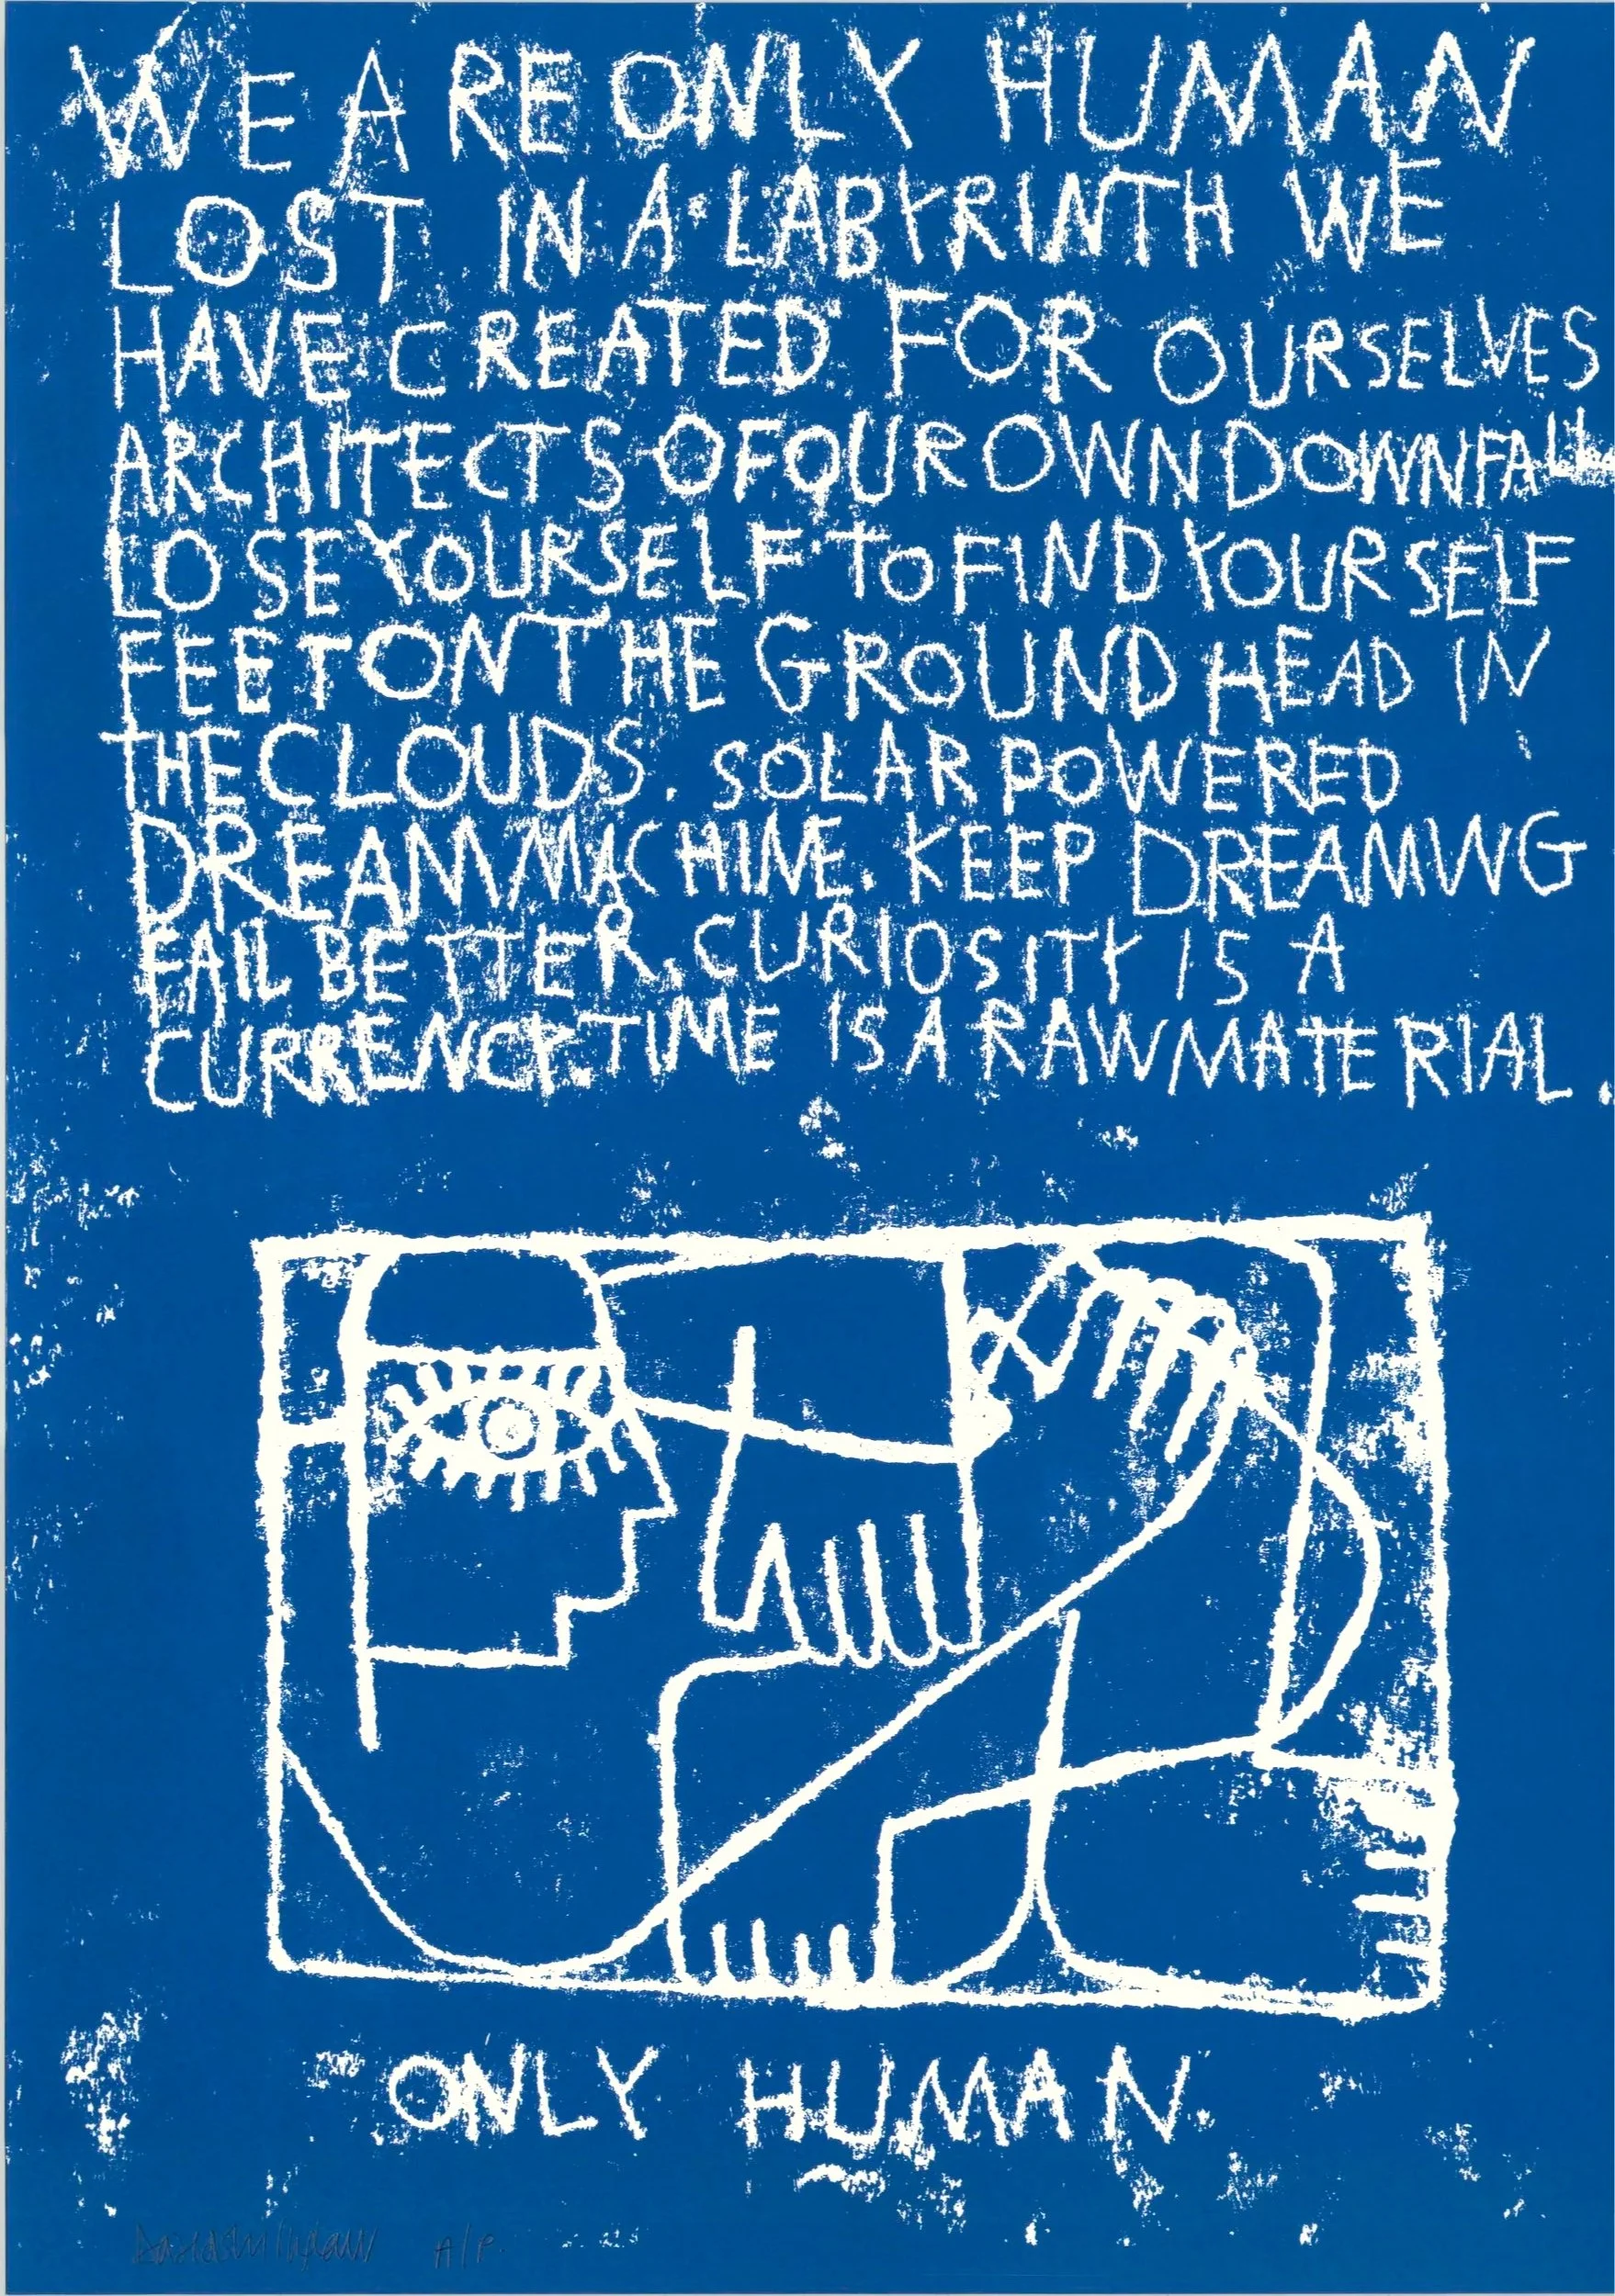 WE ARE ONLY HUMAN
LOST IN A LABYRINTH WE
HAVE CREATED FOR OURSELVES
ARCHITECTS OF OUR OWN DOWNFALL
LOSE YOURSELF TO FIND YOURSELF
FEET ON THE GROUND HEAD IN
THE CLOUDS. SOLAR POWERED
DREAM MACHINE. KEEP DREAMING
FAIL BETTER. CURIOSITY IS A
CURRENCY. TIME IS A RAW MATERIAL.
ONLY HUMAN
A/P